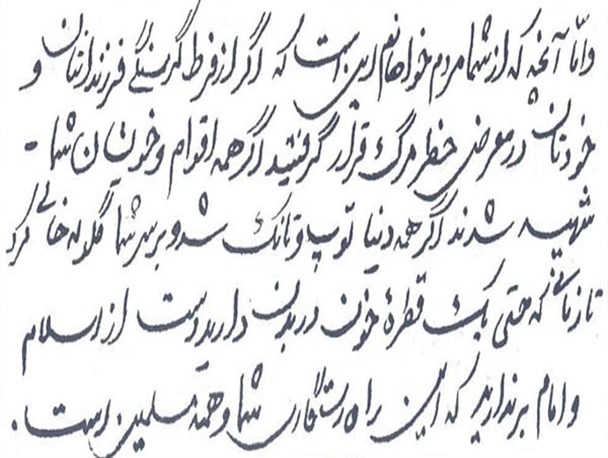 و امّا آنچه که از شما مردم خواهانم این است که اگر از فرط گرسنگی فرزندانتان و
خودتان در معرض خطر مرگ قرار گرفتید اگر همه اقوام و خویشان شما -
شهید شدند اگر همه دنیا توپ و تانک شد و بر سر شما گلوله خالی کرد
تا زمانی که حتی یک قطرهٔ خون در بدن دارید دست از اسلام
و امام برندارید که این راه رستگاری شما و همه مسلمین است .